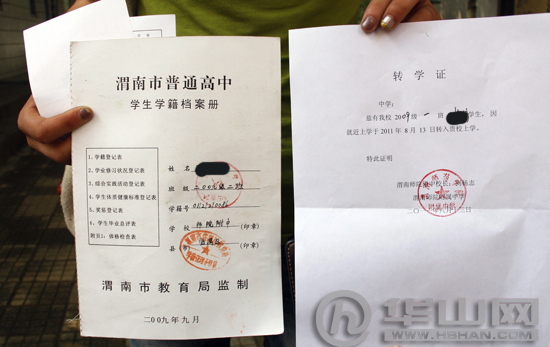 渭南市普通高中
学生学籍档案册
1.学籍登记表
2.学业修习状况登记表
3.综合实践活动登记表
4.学生体质健康标准登记表
5.奖惩登记表
6.学生毕业总评表
附页1:体格检查表
姓名
班级 二00九级二班
学籍号
学校 师院附中 (印章)
县 (印章)
渭南市教育局监制
二00九年九月
转学证
中学:
兹有我校 2009级一班 学生,因
就近上学于2011年8月13日转入贵校上学。
特此证明
渭南师院附中校长:
渭南师院附属中学
华山网
WWW.HSHAN.COM